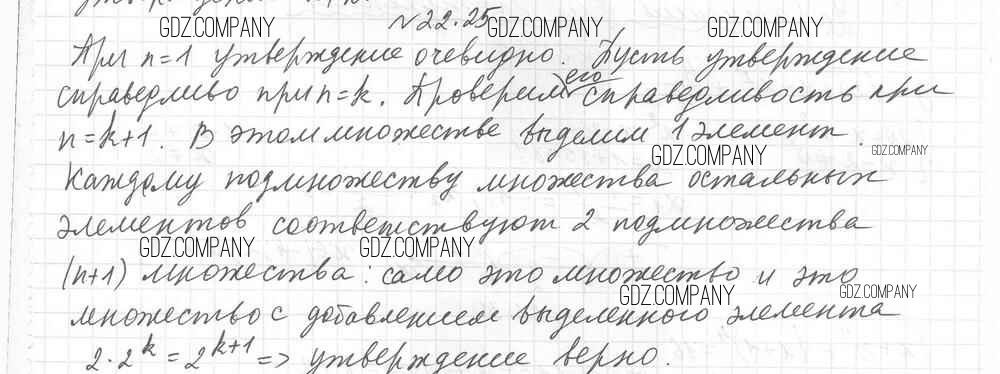 №22.25
GDZ.COMPANY GDZ.COMPANY GDZ.COMPANY
При n=1 утверждение очевидно. Пусть утверждение
справедливо при n=k. Проверим его справедливость при
n=k+1. В этом множестве выделим 1 элемент.
GDZ.COMPANY GDZ.COMPANY
Каждому подмножеству множества остальных
элементов соответствуют 2 подмножества
GDZ.COMPANY GDZ.COMPANY
(n+1) множества: само это множество и это
GDZ.COMPANY GDZ.COMPANY
множество с добавлением выделенного элемента
2·2^k = 2^{k+1} => утверждение верно.